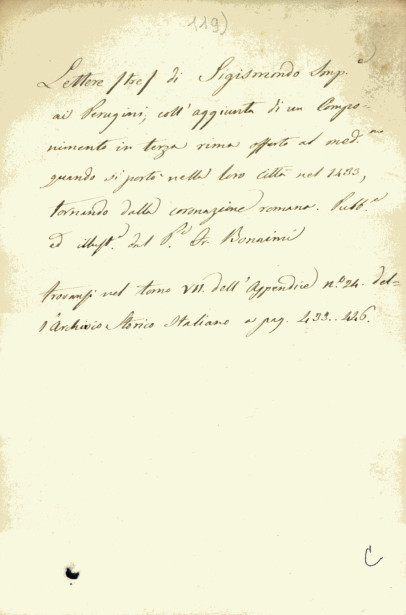 119)
Lettere /tre/ di Sigismondo Imp.e
ai Perugini, coll'aggiunta di un Compo-
nimento in terza rima offerto al med.mo
quando si portò nella loro città nel 1433,
tornando dalla coronazione romana. Pubb.e
ed illust.e dal P.e Fr. Bonaini
trovansi nel tomo VII. dell'Appendice n.o 24. del-
l'Archivio Storico Italiano a pag. 433..446.
C